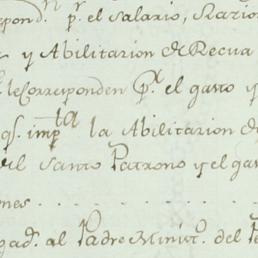 pond.n p.r el Salario, Razio
y Abilitarion de Recua
le Corresponden p.a el gasto y
q.s imp.ta la Abilitarion de
del Santo Patrono y el gas
ones . . . . . . . .
gad.s al Padre Minit.o del P